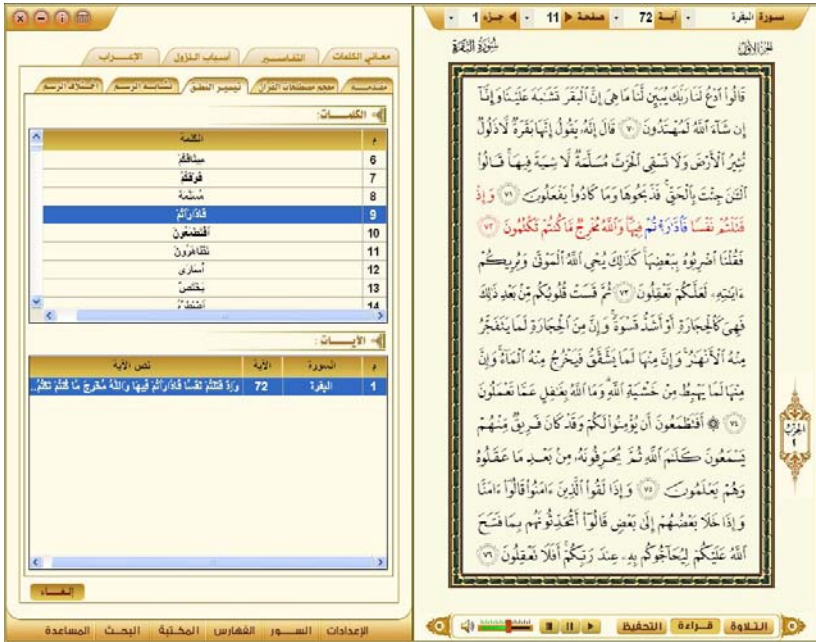 سورة البقرة
آيـة 72
صفحة 11
جـزء 1
الجزء الأول
سورة البقرة
قَالُوا۟ ٱدْعُ لَنَا رَبَّكَ يُبَيِّن لَّنَا مَا هِىَ إِنَّ ٱلْبَقَرَ تَشَٰبَهَ عَلَيْنَا وَإِنَّآ
إِن شَآءَ ٱللَّهُ لَمُهْتَدُونَ ٧٠ قَالَ إِنَّهُۥ يَقُولُ إِنَّهَا بَقَرَةٌ لَّا ذَلُولٌ
تُثِيرُ ٱلْأَرْضَ وَلَا تَسْقِى ٱلْحَرْثَ مُسَلَّمَةٌ لَّا شِيَةَ فِيهَا ۚ قَالُوا۟
ٱلْـَٰٔنَ جِئْتَ بِٱلْحَقِّ ۚ فَذَبَحُوهَا وَمَا كَادُوا۟ يَفْعَلُونَ ٧١ وَإِذْ
قَتَلْتُمْ نَفْسًا فَٱدَّٰرَْٰٔتُمْ فِيهَا ۖ وَٱللَّهُ مُخْرِجٌ مَّا كُنتُمْ تَكْتُمُونَ ٧٢
فَقُلْنَا ٱضْرِبُوهُ بِبَعْضِهَا ۚ كَذَٰلِكَ يُحْىِ ٱللَّهُ ٱلْمَوْتَىٰ وَيُرِيكُمْ
ءَايَٰتِهِۦ لَعَلَّكُمْ تَعْقِلُونَ ٧٣ ثُمَّ قَسَتْ قُلُوبُكُم مِّنۢ بَعْدِ ذَٰلِكَ
فَهِىَ كَٱلْحِجَارَةِ أَوْ أَشَدُّ قَسْوَةً ۚ وَإِنَّ مِنَ ٱلْحِجَارَةِ لَمَا يَتَفَجَّرُ
مِنْهُ ٱلْأَنْهَٰرُ ۚ وَإِنَّ مِنْهَا لَمَا يَشَّقَّقُ فَيَخْرُجُ مِنْهُ ٱلْمَآءُ ۚ وَإِنَّ
مِنْهَا لَمَا يَهْبِطُ مِنْ خَشْيَةِ ٱللَّهِ ۗ وَمَا ٱللَّهُ بِغَٰفِلٍ عَمَّا تَعْمَلُونَ
٧٤ ۞ أَفَتَطْمَعُونَ أَن يُؤْمِنُوا۟ لَكُمْ وَقَدْ كَانَ فَرِيقٌ مِّنْهُمْ
يَسْمَعُونَ كَلَٰمَ ٱللَّهِ ثُمَّ يُحَرِّفُونَهُۥ مِنۢ بَعْدِ مَا عَقَلُوهُ
وَهُمْ يَعْلَمُونَ ٧٥ وَإِذَا لَقُوا۟ ٱلَّذِينَ ءَامَنُوا۟ قَالُوٓا۟ ءَامَنَّا
وَإِذَا خَلَا بَعْضُهُمْ إِلَىٰ بَعْضٍ قَالُوٓا۟ أَتُحَدِّثُونَهُم بِمَا فَتَحَ
ٱللَّهُ عَلَيْكُمْ لِيُحَآجُّوكُم بِهِۦ عِندَ رَبِّكُمْ ۚ أَفَلَا تَعْقِلُونَ ٧٦
الحزب
٢
التـلاوة
قـراءة
التحفيظ
معـانـي الكلمات
التفـاسـيـر
أسـبـاب الـنـزول
الإعــراب
مقدمــة
معجم مصطلحات القرآن
تيسير النطق
تشابـه الرسـم
اختلاف الرسم
الكلمــــات:
م الكلمة
6 ميثاقكم
7 فوقكم
8 مسلمة
9 فادارأتم
10 أفتطمعون
11 تظاهرون
12 أسارى
13 يختص
14 أضطره
الآيـــــات:
م السورة الآية نص الآية
1 البقرة 72 وإذ قتلتم نفسا فادارأتم فيها والله مخرج ما كنتم تكتم..
إلغــاء
الإعدادات
الســـور
الفهارس
المكـتبة
البحـث
المساعدة